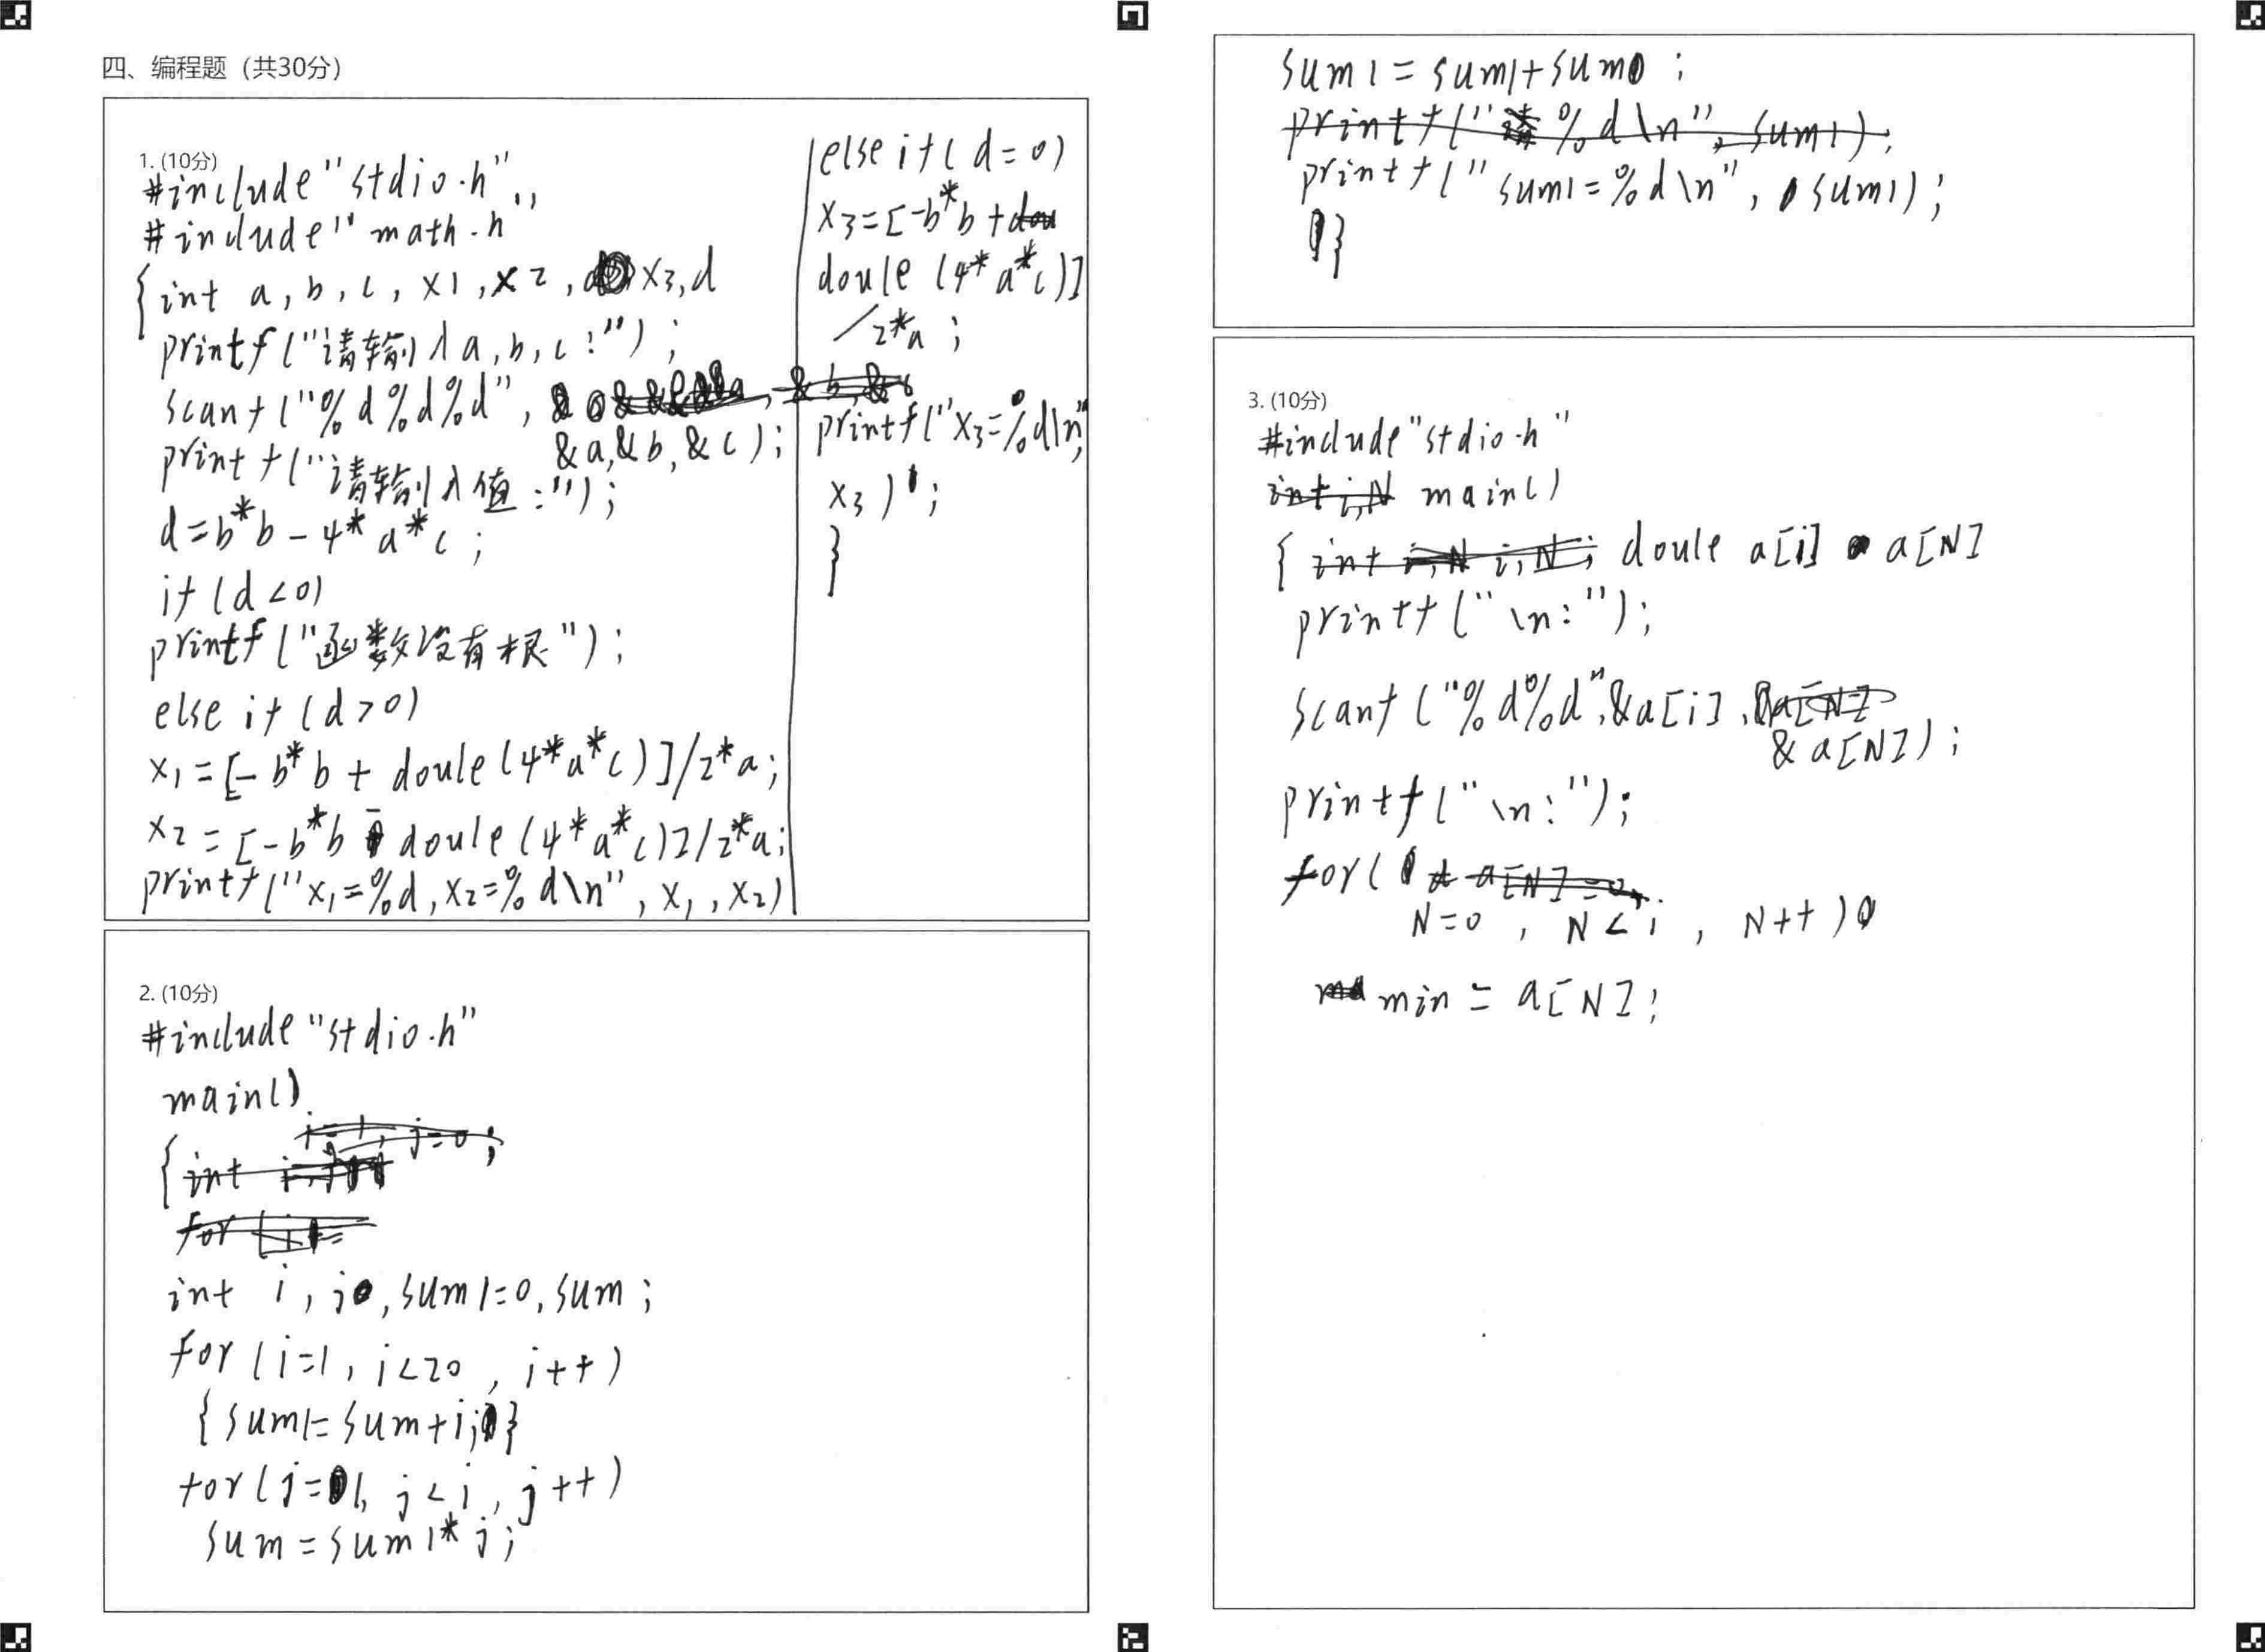 四、编程题（共30分）
1. (10分)
#include"stdio.h"
#include"math.h"
{int a,b,c,x1,x2,x3,d
printf("请输入a,b,c:");
scanf("%d%d%d",
&a,&b,&c);
printf("请输入值:");
d=b*b-4*a*c;
if(d<0)
printf("函数没有根");
else if(d>0)
x1=[-b*b+doule(4*a*c)]/2*a;
x2=[-b*b-doule(4*a*c)]/2*a;
printf("x1=%d,x2=%d\n",x1,x2)
else if(d=0)
x3=[-b*b+
doule(4*a*c)]
/2*a;
printf("x3=%d\n",
x3);
}
2. (10分)
#include"stdio.h"
main()
{
int i,j,sum1=0,sum;
for(i=1,i<20,i++)
{sum1=sum+i;}
for(j=1,j<i,j++)
sum=sum1*j;
sum1=sum1+sum;
printf("sum1=%d\n",sum1);
}
3. (10分)
#include"stdio.h"
main()
{ doule a[i] a[N]
printf("\n:");
scanf("%d%d",&a[i],
&a[N]);
printf("\n:");
for(
N=0,N<i,N++)
min=a[N];